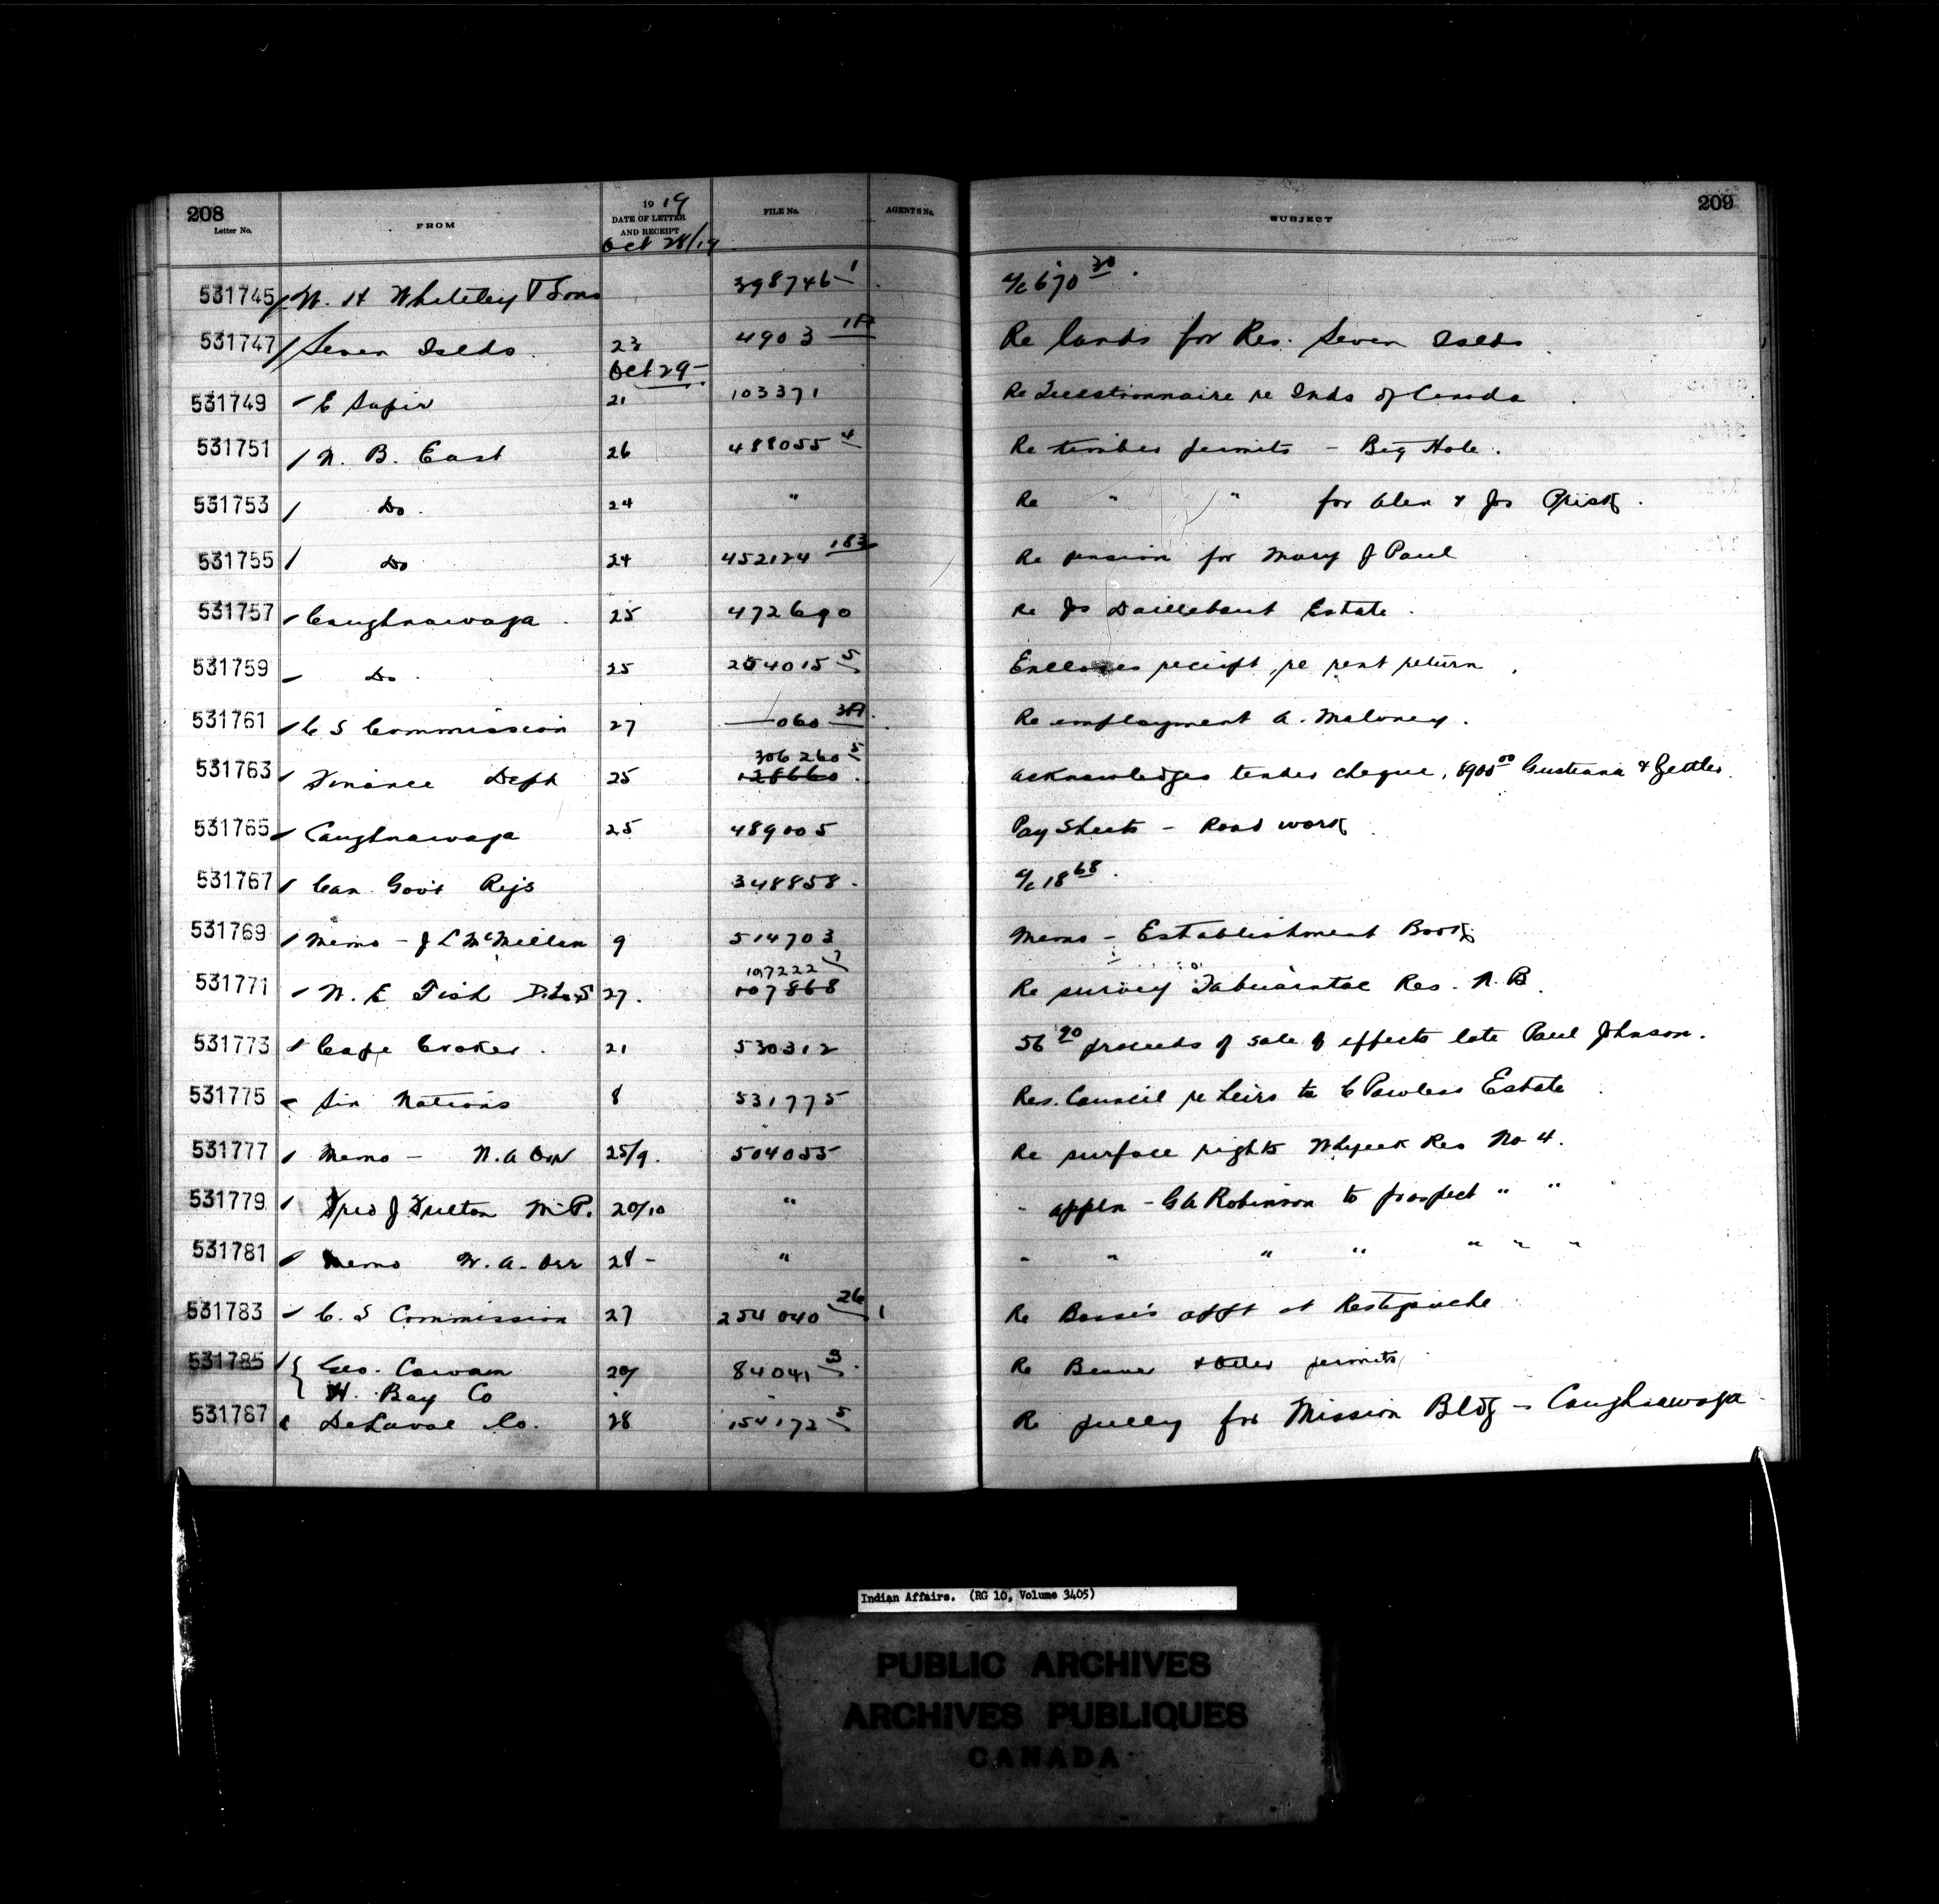 208
Letter No.
FROM
19 19
DATE OF LETTER
AND RECEIPT
Oct 28/19
FILE No.
AGENTS No.
SUBJECT
209
531745 W. H Whiteley & Sons 398746-1 a/c 670 30
531747 Seven Islds. 23 4903 1A Re lands for Res. Seven Islds
Oct 29-
531749 E Sapir 21 103371 Re Questionnaire re Inds of Canada
531751 N. B. East 26 488055 4 Re timber permits - Big Hole.
531753 Do. 24 " Re " " for Alex & Jos
531755 Do 24 452124 183 Re pension for Mary J Paul
531757 Caughnawaga 25 472690 Re Jos Daillebout Estate.
531759 Do 25 254015 5 Encloses receipt re rent return
531761 C S Commission 27 —060 3A Re employment A. Maloney.
531763 Finance Dept 25 306260 5 128660 acknowledges tender cheque, 8900 00 &
531765 Caughnawaga 25 489005 Pay Sheets - Road work
531767 Can Govt Rys 348858 a/c 18 68.
531769 Memo - J L McMillan 9 514703 Memo - Establishment Book
531771 W. E Fish D.L.S 27. 107222 7 107868 Re survey Res. N.B.
531773 Cape Croker. 21 530312 56 90 proceeds of sale of effects late Paul Johnson.
531775 Six Nations 8 531775 Res. Council re heirs to C Powless Estate
531777 Memo - W.A Orr 25/9. 504055 Re surface rights Whyeek Res No 4.
531779 Fred J Fulton M.P. 20/10 " " appln - GA Robinson to prospect " "
531781 Memo W. A. Orr 28 - " " " " " " " "
531783 C. S Commission 27 254040 26 Re Basse's appt at Restigouche
531785 Geo. Cowan 20/ 84041 3. Re Beaver & Otter permits
H. Bay Co
531787 DeLaval Co. 28 154172 5 Re pulley for Mission Bldg - Caughnawaga
Indian Affairs. (RG 10, Volume 3405)
PUBLIC ARCHIVES
ARCHIVES PUBLIQUES
CANADA